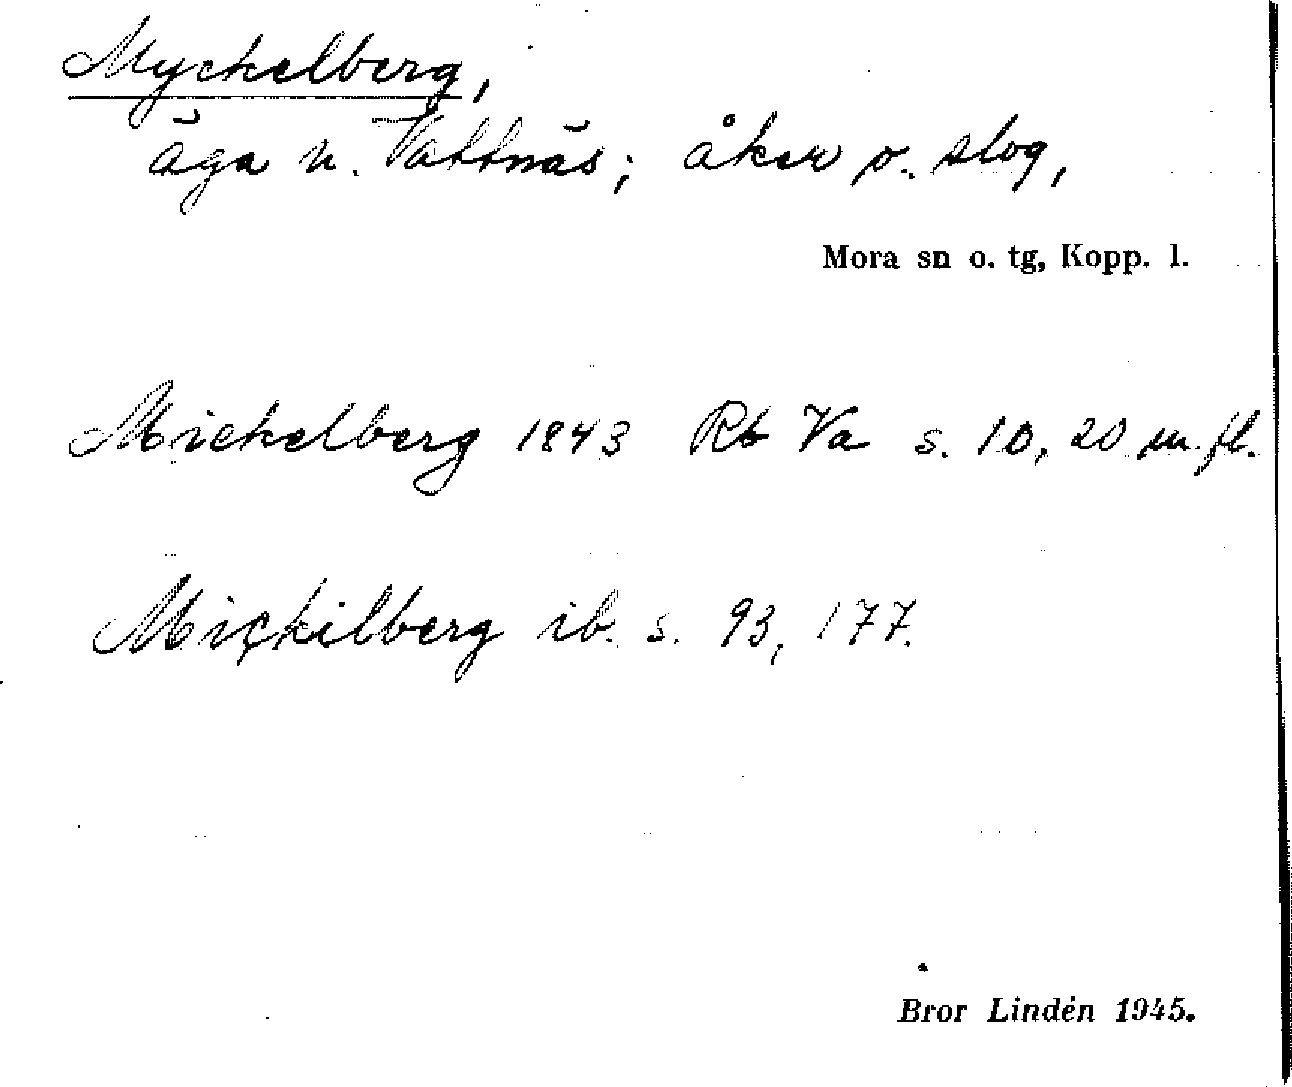 Myckelberg,
äga n. Vattnäs; åker o. slog,
Mora sn o. tg, Kopp. l.
Mickelberg 1843 Rb Va s. 10, 20 m. fl.
Mickilberg ib. s. 93, 177.
Bror Lindén 1945.